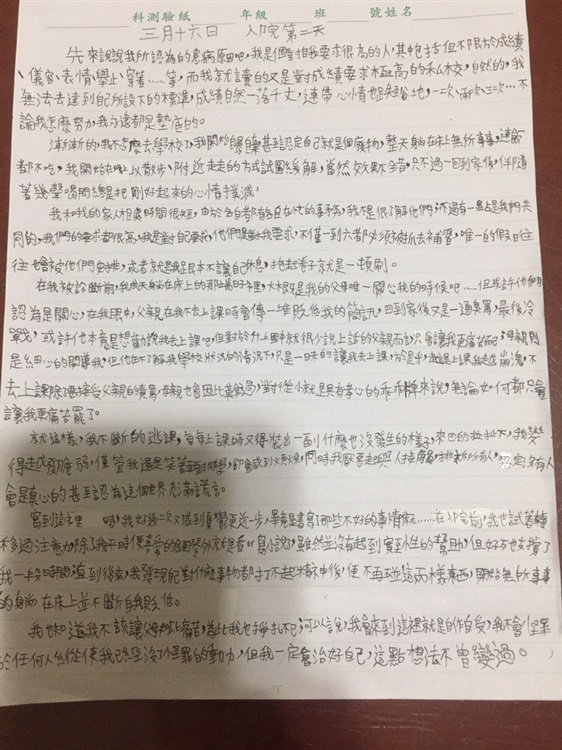 科測驗紙 年級 班 號姓名
三月十六日 入院第二天
先來說說我所認為的患病原因吧,我是個對自我要求很高的人,其中包括但不限於成績
、儀容、表情、舉止、穿著……等,而我就讀的又是對成績要求極高的私校,自然的,我
無法去達到自己所設下的標準,成績自然一落千丈,連帶心情也跌到谷地,一次、兩次、三次……不
論我怎麼努力,我永遠都是墊底的。
漸漸的,我不怎麼去學校了,我開始 甚至認定自己就是個廢物,整天躺在床上無所事事,連飯
都不吃,我開始在晚上以散步、附近走走的方式試圖緩解,當然效果不錯,只不過一回到家後,伴隨
著幾聲喝悶總是把剛好起來的心情撲滅。
我和我的家人相處時間很短,由於各自都有各自在忙的事務,我不是很了解他們,不過有一點是我們共
同的,我們的要求都很高,我是對自己要求,他們是對我要求,不僅一到六都必須樹所去補習,唯一的假日往
往也會被他們 ,或者就是我是根本不讓自己休息,抱起吾子就是一頓刷。
在我被診斷前,我成天躺在床上的那段時 裡,大概是我的父母唯一關心我的時候吧……但或許他們
認為是關心,在我眼中,父親在我不去上課時會傳一堆貶低我的簡訊,回到家後又是一通臭罵,最後冷
戰,或許他本意是想勸說我去上課吧,但對於升上國中就很少說上話的父親而言,只會讓我更痛苦吧;母親則
是細心的開導我,但他在不了解我學校狀況的情況下,只是一味的讓我去上課,於是乎,越是上課我越崩潰,不
去上課除了要接受父親的責罵,母親也會因此難過,對從小就是具有孝心的乖乖牌來說,無論如何都只會
讓我更痛苦罷了。
就這樣,我不斷的逃課,每每上課時又得裝出一副什麼也沒發生的樣子,來回的拉扯下,我變
得越發脆弱,僅管我還是笑著面對同學,即會感到火冒火燥,同時我厭惡走與人接觸,排斥所有人,認定沒有人
會是真心的,甚至認為這個世界充滿謊言。
寫到這裡時,我好幾次又感到負擔更近一步,畢竟是書寫了那些不好的事情嘛……在入院前,我也試著轉
移過注意力,除了我平時便喜愛的 外就是看「寫小說」,雖然並沒有起到實性的幫助,但好歹也支撐了
我一段時間,直到後來,我發現已對什麼事物都打不起精神後,便不再碰這兩樣東西,開始無所事事
的躺在床上並不斷自我貶低。
我也知道我不該讓父母如此痛苦,為此我也掙扎不已,可以說,我會來到這裡就是自作自受,我不會怪罪
於任何人,縱使我已經沒了怪罪的動力,但我一定會治好自己,這點想法不曾變過。